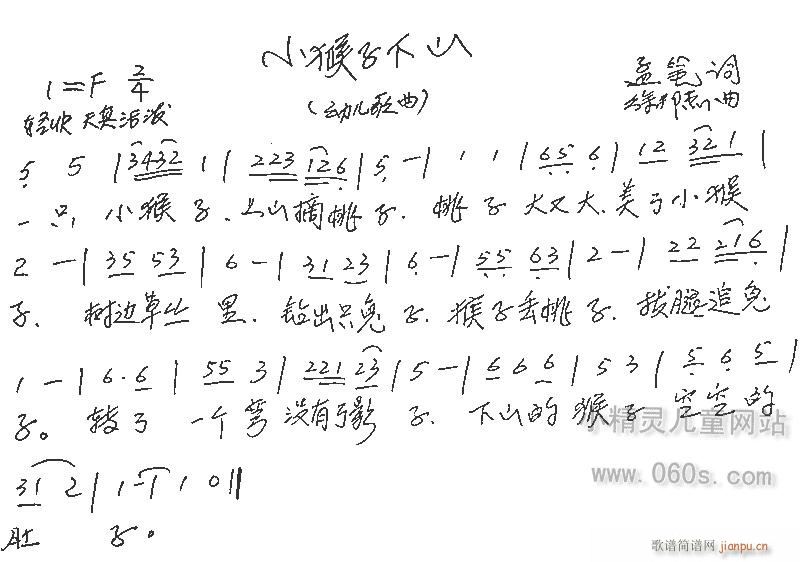 小猴子下山
1=F 2/4
孟 笔 词
轻快 天真活泼
(幼儿歌曲)
徐邦杰 曲
5 5 | 3432 1 | 223 126 | 5 - | 1 1 | 65 6 | 12 321 |
一只, 小猴子, 上山摘桃子. 桃子大又大, 美了小猴
2 - | 35 53 | 6 - | 31 23 | 6 - | 55 63 | 2 - | 22 216 |
子. 树边草丛里. 钻出只兔子. 猴子丢桃子. 拔腿追兔
1 - | 6. 6 | 55 3 | 221 23 | 5 - | 66 6 | 5 3 | 5 6 5 |
子。 转了一个弯 没有了影子. 下山的猴子 空空的
精灵儿童网站
www.060s.com
31 2 | 1 - | 1 0 ||
肚 子。
歌谱简谱网 jianpu.cn